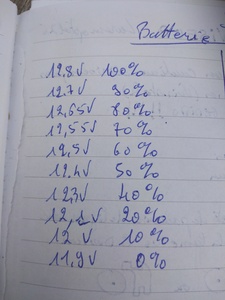 Batterie
12.8V 100%
12.7V 90%
12,65V 80%
12,55V 70%
12,5V 60%
12,4V 50%
12,3V 40%
12,2V 20%
12 V 10%
11,9V 0%